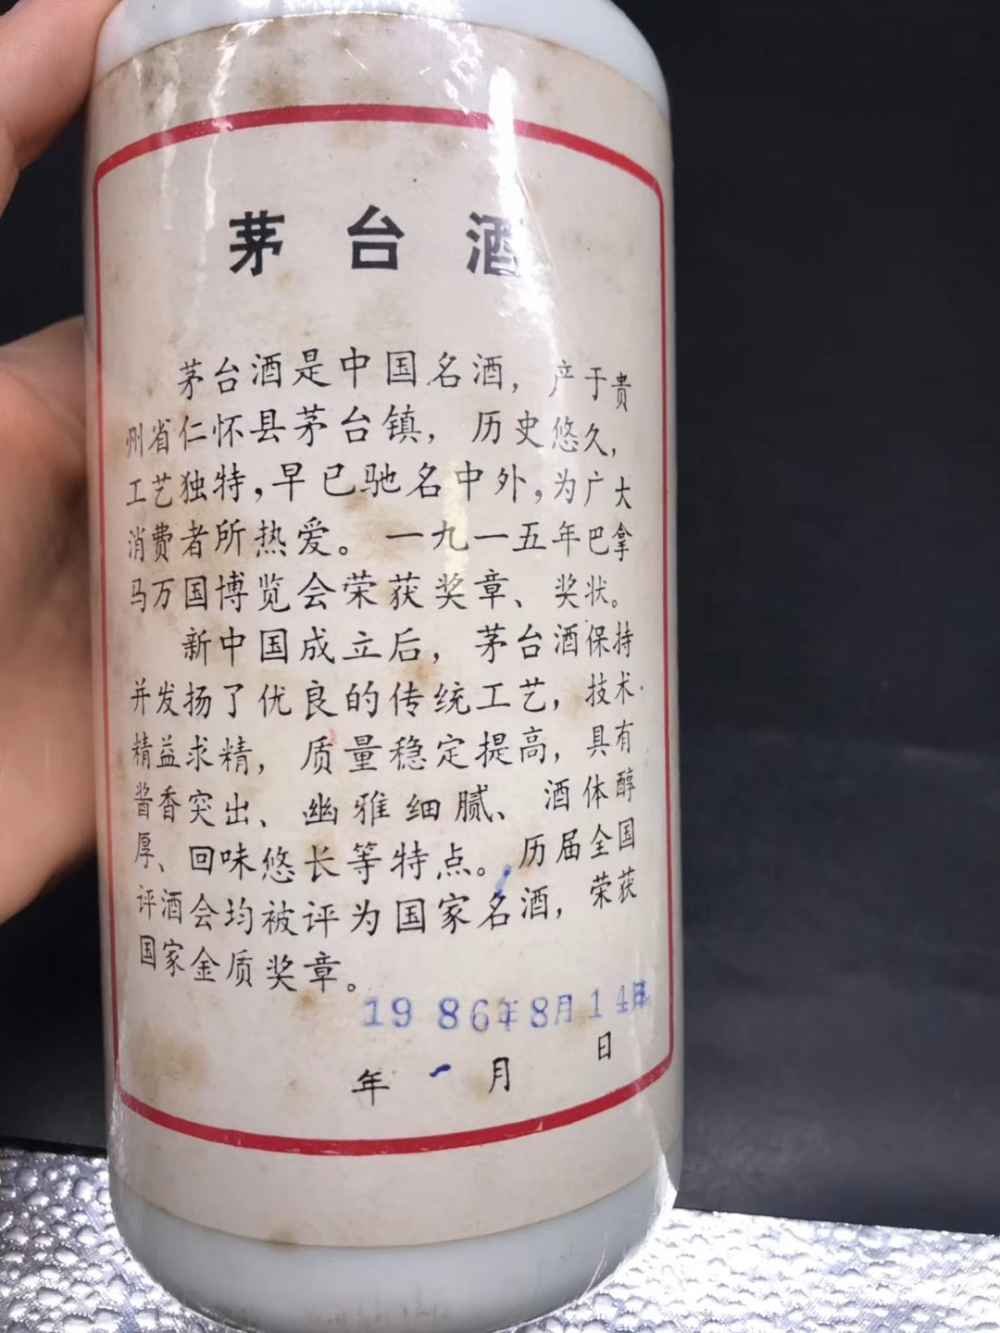 茅台酒
茅台酒是中国名酒，产于贵
州省仁怀县茅台镇，历史悠久，
工艺独特，早已驰名中外，为广大
消费者所热爱。一九一五年巴拿
马万国博览会荣获奖章、奖状。
新中国成立后，茅台酒保持
并发扬了优良的传统工艺，技术
精益求精，质量稳定提高，具有
酱香突出、幽雅细腻、酒体醇
厚、回味悠长等特点。历届全国
评酒会均被评为国家名酒，荣获
国家金质奖章。
1986年8月14日
年 月 日